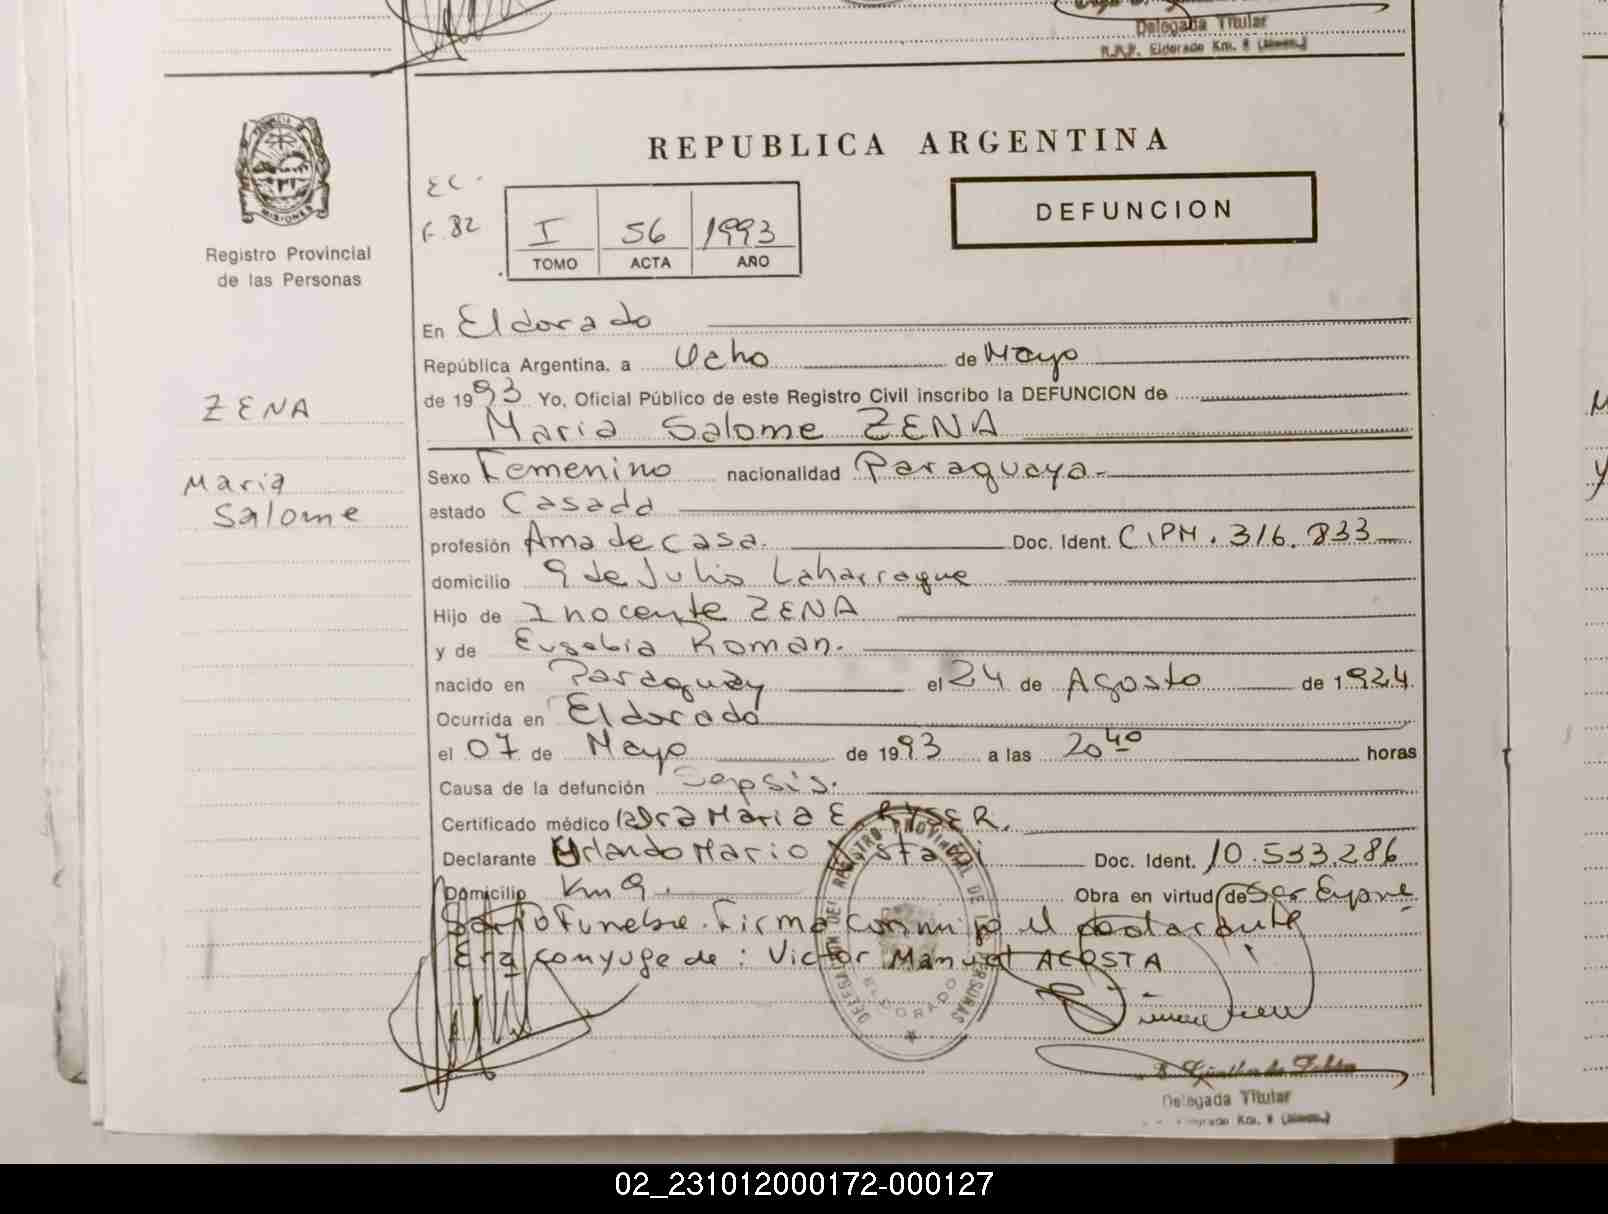 Delegada Titular
R.P.P. Eldorado Km. 8 (Misiones)
PROVINCIA DE
MISIONES
Registro Provincial
de las Personas
REPUBLICA ARGENTINA
DEFUNCION
EC.
F. 82
I 56 1993
TOMO ACTA AÑO
ZENA
Maria
Salome
En Eldorado
República Argentina, a Ocho de Mayo
de 1993 Yo, Oficial Público de este Registro Civil inscribo la DEFUNCION de
Maria Salome ZENA
Sexo Femenino nacionalidad Paraguaya.
estado Casada
profesión Ama de casa. Doc. Ident. C.I.P.M. 316.833
domicilio 9 de Julio Laharrague
Hijo de Inocente ZENA
y de Eusebia Roman.
nacido en Paraguay el 24 de Agosto de 1924
Ocurrida en Eldorado
el 07 de Mayo de 1993 a las 20 40 horas
Causa de la defunción Sepsis.
Certificado médico la Dra Maria E. RYSER.
Declarante Orlando Mario Doc. Ident. 10.533.286
Domicilio Km 9. Obra en virtud de Ser
Funebre. Firma conmigo el
Era conyuge de: Victor Manuel ACOSTA
DELEGACION DEL REGISTRO PROVINCIAL DE LAS PERSONAS
ELDORADO
Delegada Titular
Eldorado Km. 8 (Misiones)
02_231012000172-000127